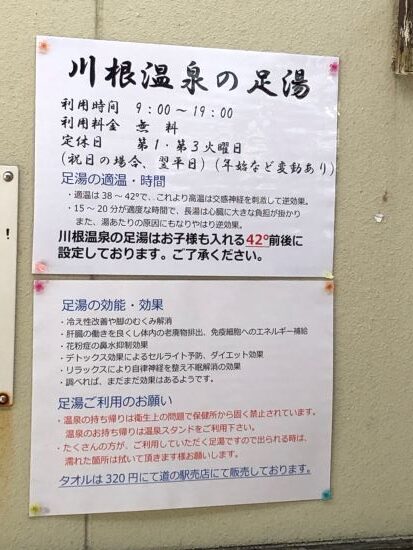 川根温泉の足湯
利用時間 9:00~19:00
利用料金 無 料
定休日 第1・第3火曜日
(祝日の場合、翌平日)(年始など変動あり)
足湯の適温・時間
・適温は38~42°で、これより高温は交感神経を刺激して逆効果。
・15~20分が適度な時間で、長湯は心臓に大きな負担が掛かり
また、湯あたりの原因にもなりやはり逆効果。
川根温泉の足湯はお子様も入れる42°前後に
設定しております。ご了承ください。
足湯の効能・効果
・冷え性改善や脚のむくみ解消
・肝臓の働きを良くし体内の老廃物排出、免疫細胞へのエネルギー補給
・花粉症の鼻水抑制効果
・デトックス効果によるセルライト予防、ダイエット効果
・リラックスにより自律神経を整え不眠解消の効果
・調べれば、まだまだ効果はあるようです。
足湯ご利用のお願い
・温泉の持ち帰りは衛生上の問題で保健所から固く禁止されています。
温泉のお持ち帰りは温泉スタンドをご利用下さい。
・たくさんの方が、ご利用していただく足湯ですので出られる時は、
濡れた箇所は拭いて頂きます様お願いします。
タオルは320円にて道の駅売店にて販売しております。